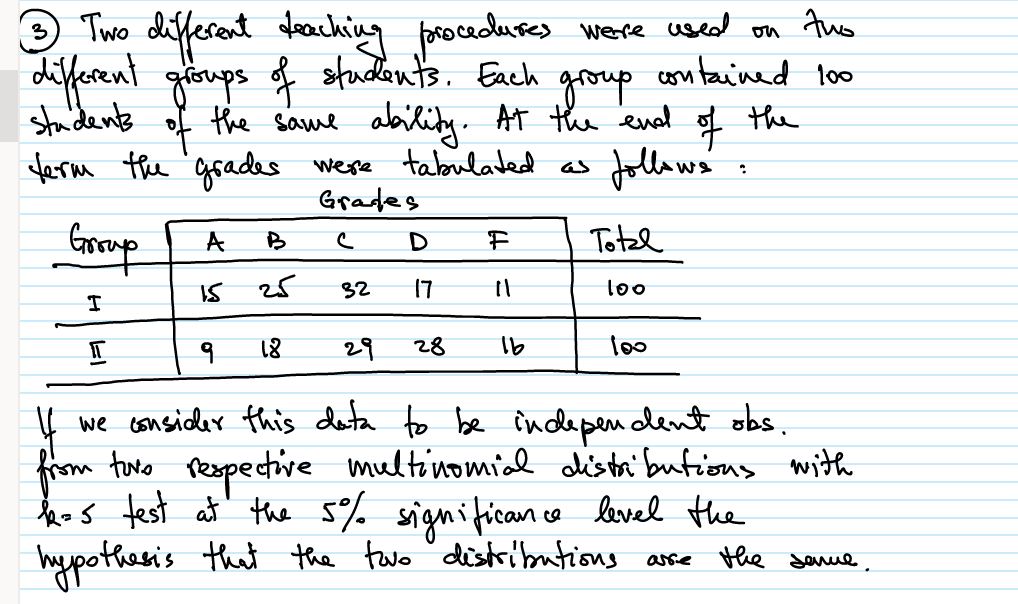 3 Two different teaching procedures were used on two
different groups of students. Each group contained 100
students of the same ability. At the end of the
term the grades were tabulated as follows :
Grades
Group A B C D F Total
I 15 25 32 17 11 100
II 9 18 29 28 16 100
If we consider this data to be independent obs.
from two respective multinomial distributions with
k=5 test at the 5% significance level the
hypothesis that the two distributions are the same.